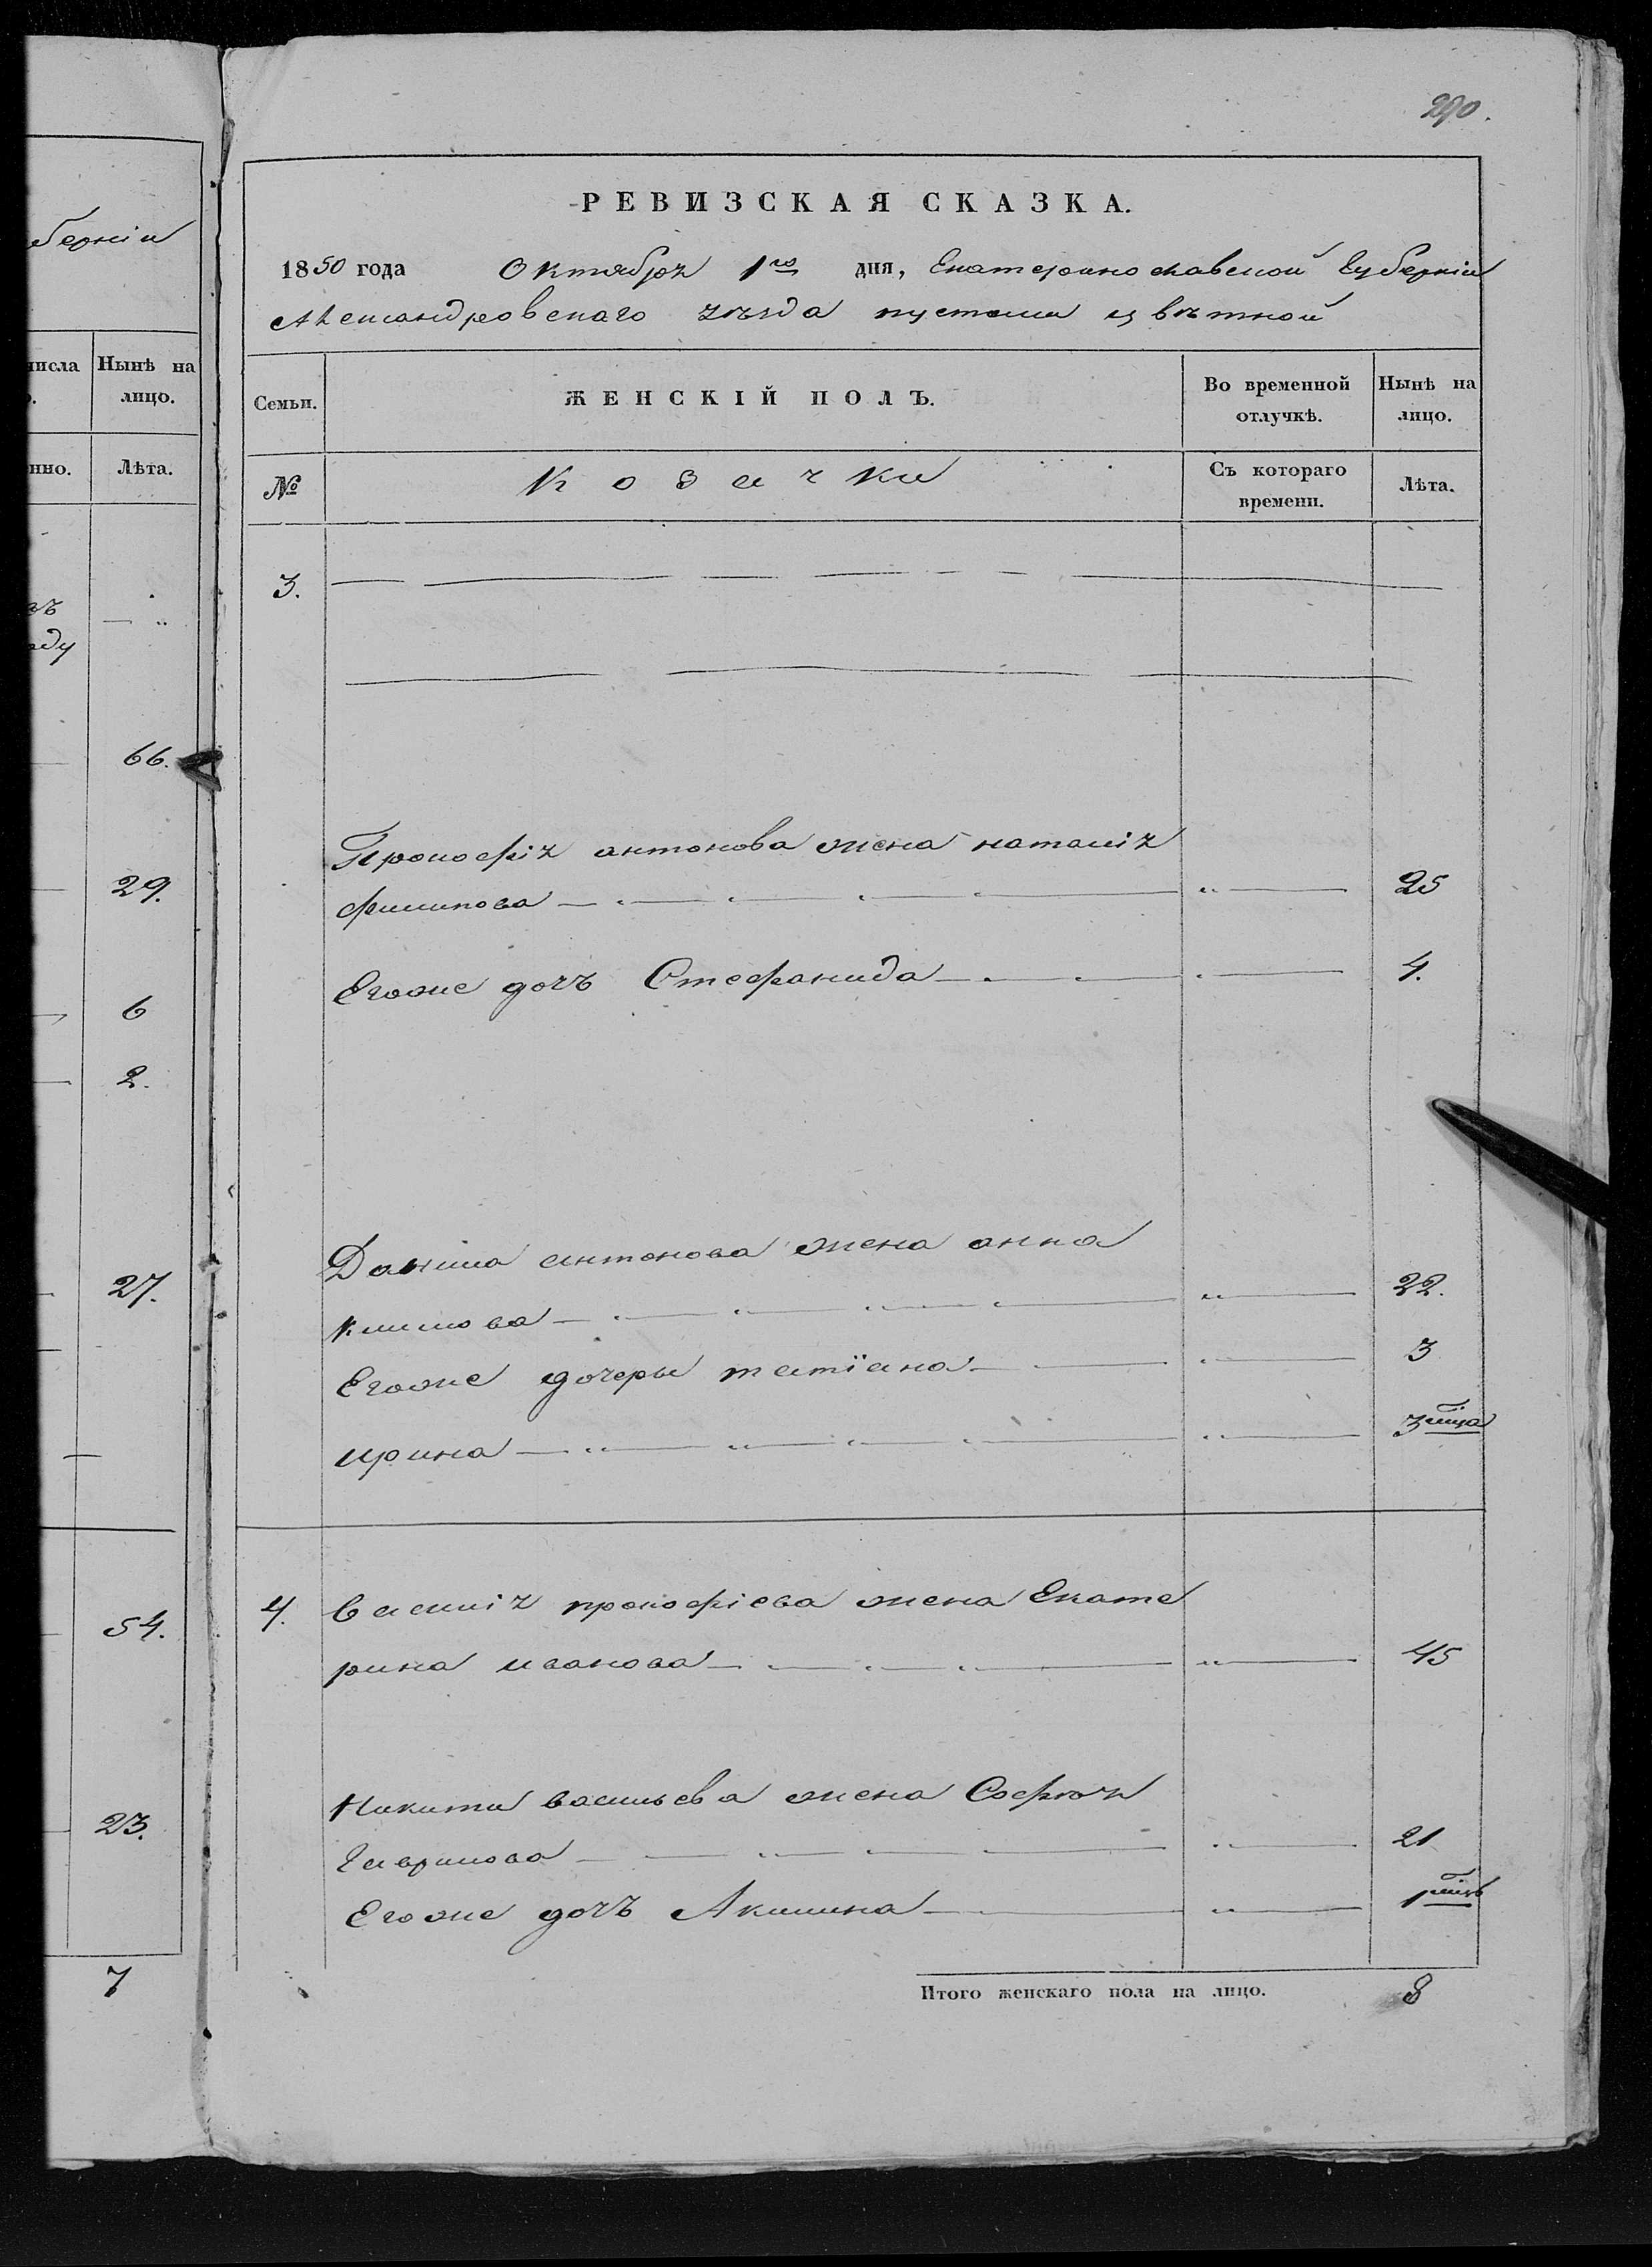 290.
берніи
РЕВИЗСКАЯ СКАЗКА.
1850 года Октября 1го дня, Екатеринославской Губерніи
Александровскаго уѣзда пустоши цвѣтной
числа Нынѣ на лицо.
нно. Лѣта.
Семьи. ЖЕНСКІЙ ПОЛЪ. Во временной отлучкѣ. Нынѣ на лицо.
№ Козачки Съ котораго времени. Лѣта.
3.
66.
Прокофія антонова жена наталія
29.
филипова 25
Егоже дочъ Стефанида 4.
6
2.
Данила антонова жена анна
27.
климова 22.
Егоже дочеры татіана 3
ирина 3 мца
4. Василія прокофіева жена Екате
54.
рина иванова 45
Никиты васильева жена Софія
23.
Гаврилова 21
Егоже дочъ Акилина 1 мцъ
7
Итого женскаго пола на лицо. 8